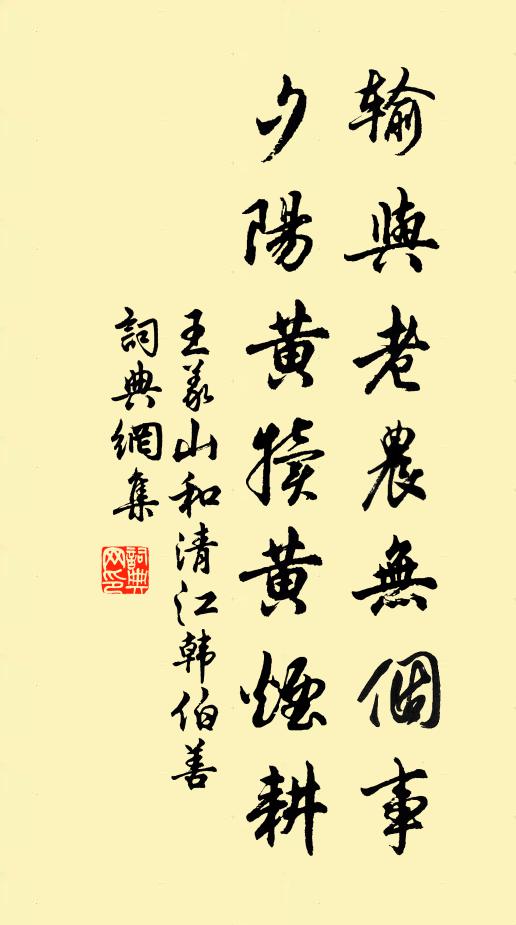 輸與老農無個事
夕陽黃犢黃煙耕
王義山和清江韩伯善
詞典網集
詞典网印